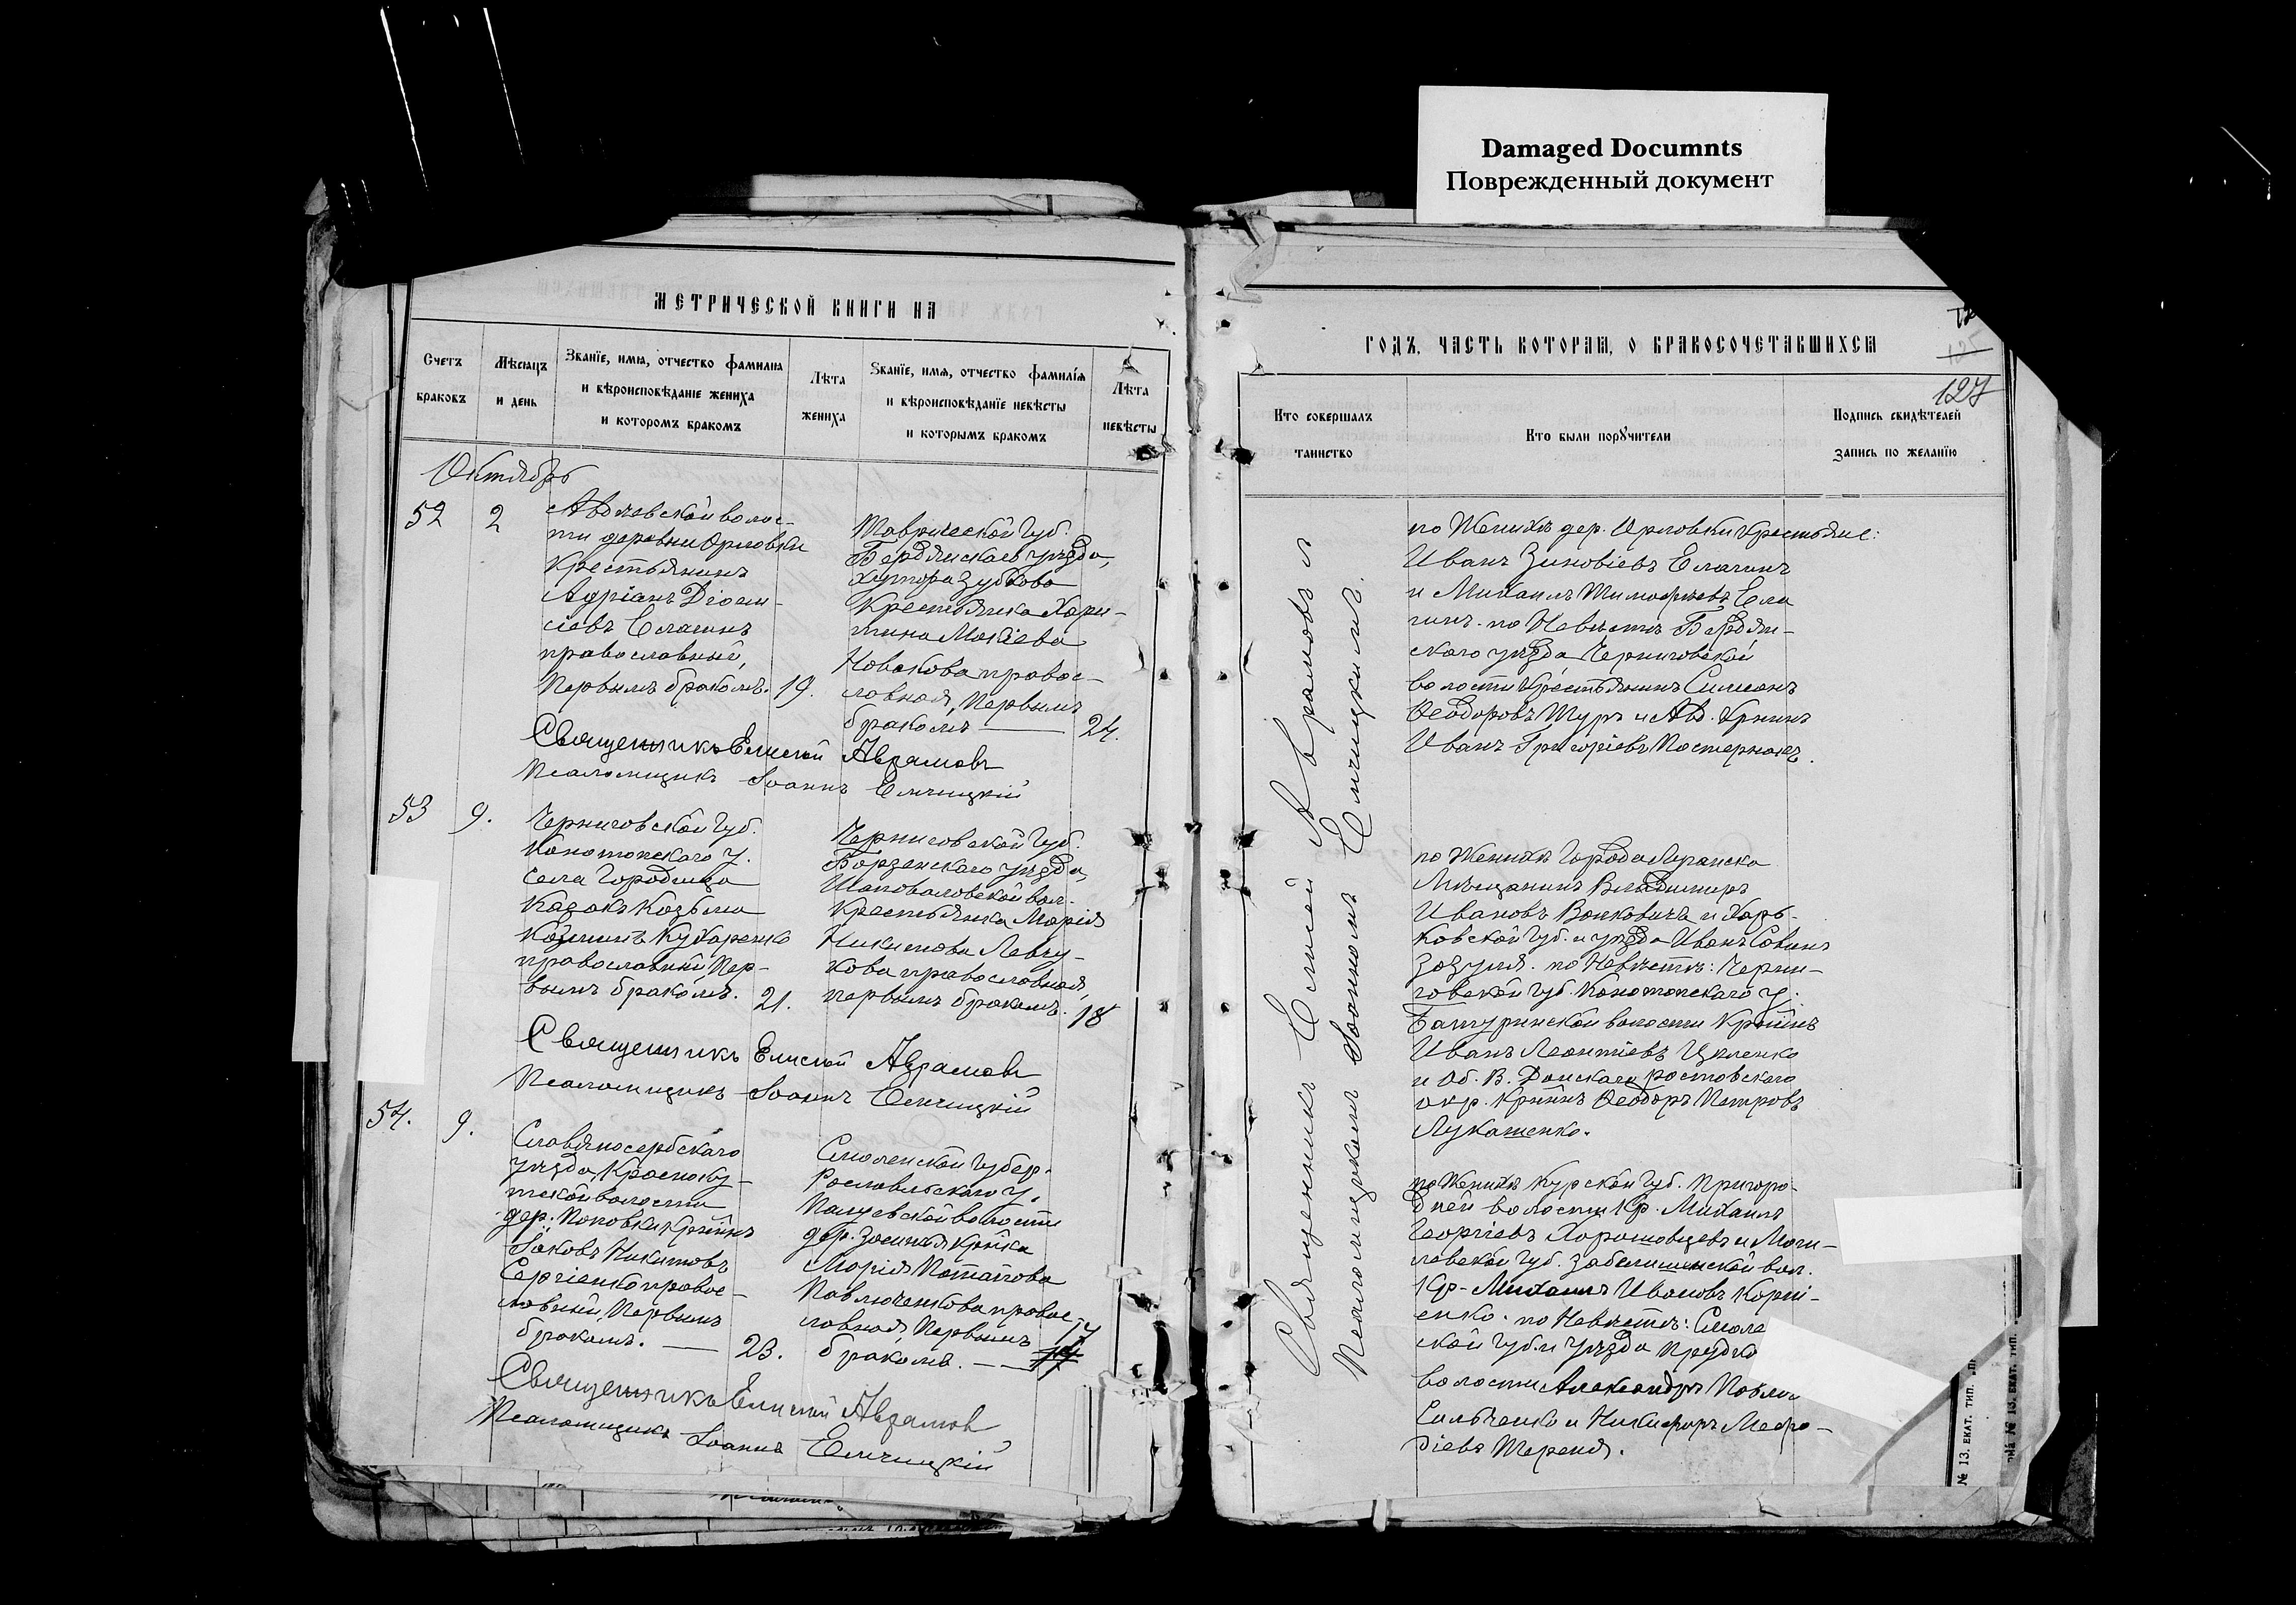 Damaged Documnts
Поврежденный документ
МЕТРИЧЕСКОЙ КНИГИ НА
Счетъ браковъ
Мѣсяцъ и день
Званїе, имя, отчество фамилиа и вѣроисповѣданїе жениха и которомъ бракомъ
Лѣта жениха
Званїе, имя, отчество фамилїя и вѣроисповѣданїе невѣсты и которымъ бракомъ
Лѣта невѣсты
Октябрь
52
2
Авдѣевской волос-
ти деревни Орловки
Крестьянинъ
Адріанъ Діони-
сіевъ Елагинъ
православный,
Первымъ бракомъ.
19.
Таврической Губ.
Бердянскаго уѣзда,
хутора Зубково
Крестьянка Хари-
тина Мокіева
Новакова правос-
лавная, Первымъ
бракомъ
24.
Священникъ Елисей Аврамовъ
Псаломщикъ Іоаннъ Елчицкій
53
9.
Черниговской Губ.
Конотопскаго У.
села Городища
Казакъ Козьма
Козминъ Кухаренко
православный Пер-
вымъ бракомъ.
21.
Черниговской Губ.
Борзенскаго уѣзда,
Шаповаловской вол.
Крестьянка Марія
Никитова Левчу-
кова православная,
первымъ бракомъ.
18
Священникъ Елисей Аврамовъ
Псаломщикъ Іоаннъ Елчицкій
54.
9.
Славяносербскаго
уѣзда, Красноку-
тской волости
дер. Поповки Кр-нинъ
Іаковъ Никитовъ
Сергіенко правос-
лавный, Первымъ
бракомъ.
23.
Смоленской Губер.
Рославльскаго У.
волости
дер. Кр-нка
Марія Потапова
Павлюченкова правос-
лавная, Первымъ
бракомъ.
17
Священникъ Елисей Аврамовъ
Псаломщикъ Іоаннъ Елчицкій
ГОДЪ, ЧАСТЬ КОТОРАЯ, О БРАКОСОЧЕТАВШИХСЯ
127
Кто совершалъ таинство
Кто были порꙋчители
Подпись свидѣтелей запись по желанїю
Священникъ Елисей Аврамовъ и
Псаломщикомъ Іоанномъ Елчицкимъ.
по Женихѣ дер. Орловки Крестьяне:
Иванъ Зиновіевъ Елагинъ
и Михаилъ Тимофѣевъ Ела
гинъ. по Невѣстѣ Бердян-
скаго уѣзда Черниговской
волости Крестьянинъ Симеонъ
Ѳеодоровъ Туръ и Авд. Кр-нинъ
Иванъ Григоріевъ Постернакъ.
по Женихѣ Города Луганска
Мѣщанинъ Владимиръ
Ивановъ Волковичъ и Харь-
ковской Губ. и уѣзда Иванъ Савинъ
Зозуля. по Невѣстѣ: Черни-
говской Губ. Конотопскаго У.
Батуринской волости Кр-нинъ
Иванъ Леонтіевъ Цѣленко
и Об. В. Донскаго Ростовскаго
окр. Кр-нинъ Ѳеодоръ Петровъ
Лукашенко.
по Женихѣ Курской Губ. Пригоро-
дней волости Кр. Михаилъ
Георгіевъ Хорошовцевъ и Моги-
левской Губ. Забелишинской вол.
Кр- Михаилъ Ивановъ Корні-
енко. по Невѣстѣ: Смоле
ской Губ. и Уѣзда Прудко
волости Александръ Павло
Сильченко и Никифоръ Мефо-
діевъ Тереня.
№ 13. ЕКАТ. ТИП.
№ 13. ЕКАТ. ТИП.